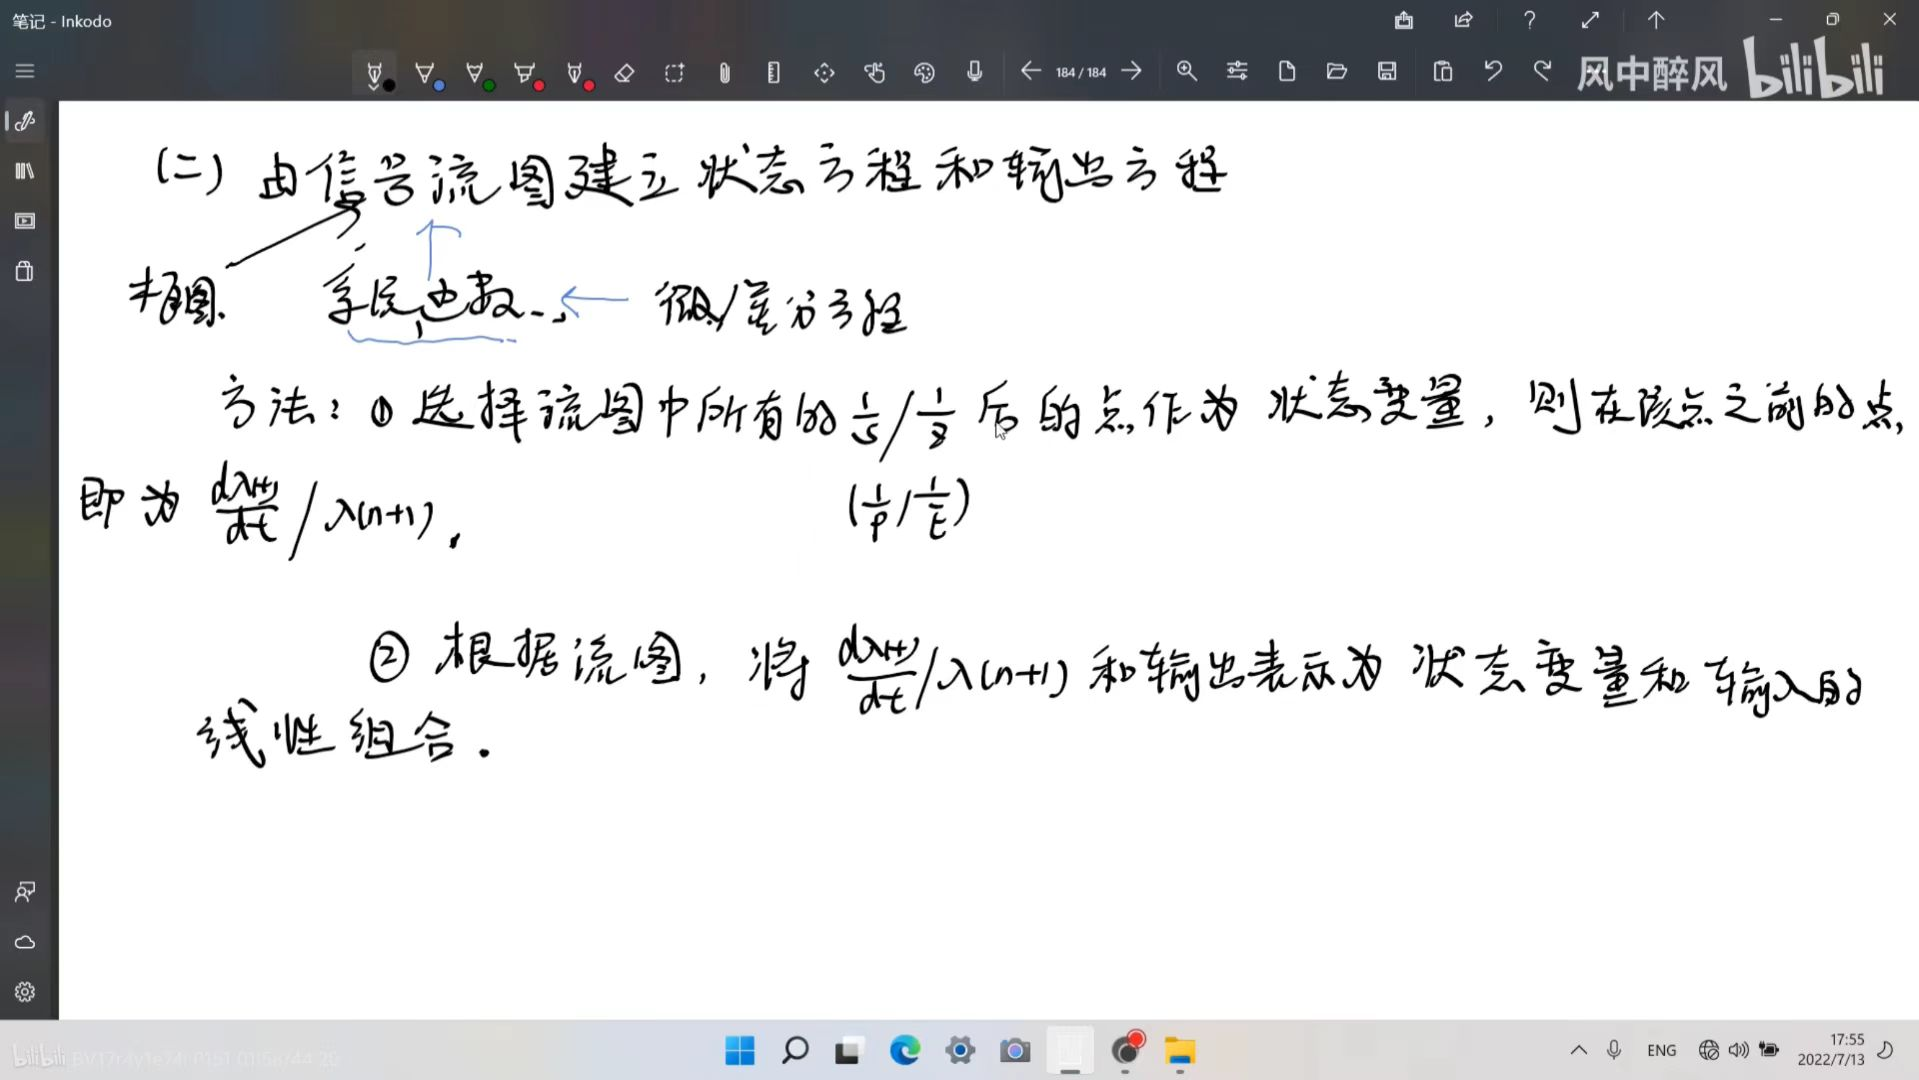 笔记 - Inkodo
184 / 184
风中醉风 bilibili
(二) 由信号流图建立状态方程和输出方程
框图. 系统函数 ← 微/差分方程
方法: ① 选择流图中所有的 1/s / 1/z 后的点作为状态变量, 则在该点之前的点,
(1/p / 1/E)
即为 dλ(t)/dt / λ(n+1).
② 根据流图, 将 dλ(t)/dt / λ(n+1) 和输出表示为状态变量和输入的
线性组合.
bilibili
ENG
17:55
2022/7/13